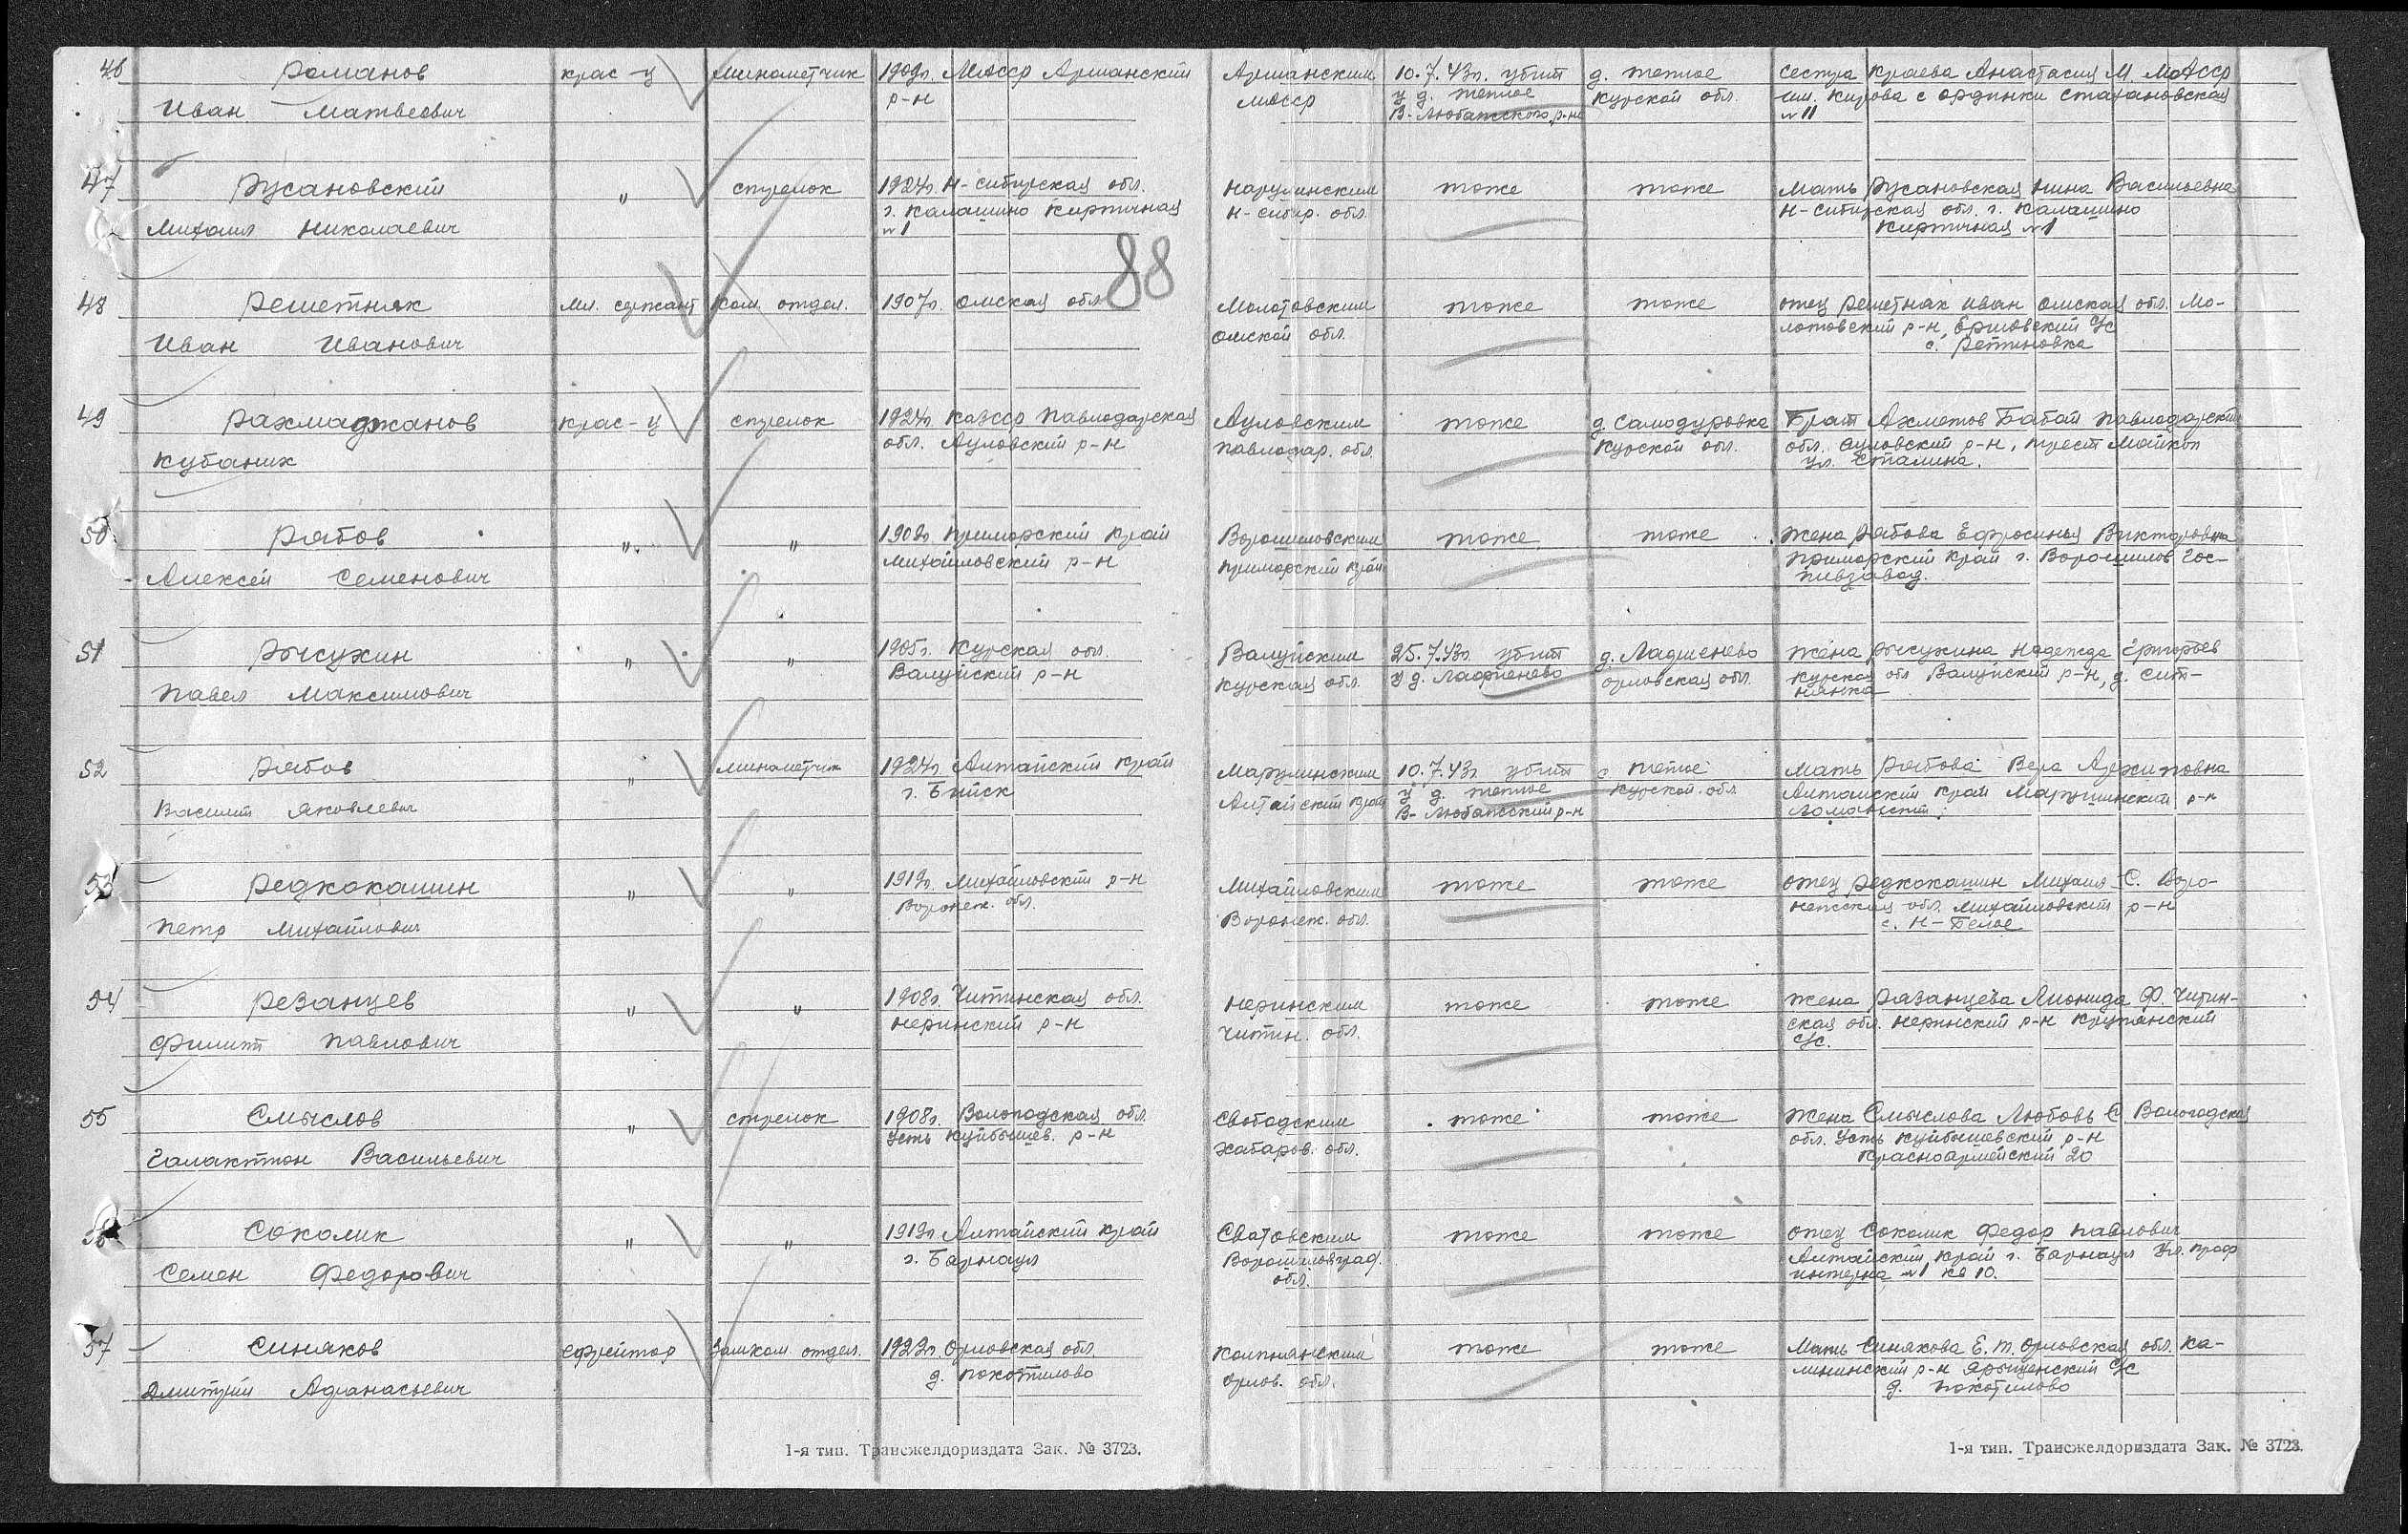 46 Романов крас-ц минометчик 1909г. МАССР Арманский Арманским 10.7.43г. убит д. теплое сестра Краева Анастасия М. МаАССР
Иван Матвеевич р-н МАССР у д. теплое Курской обл. им. Кирова с ордынки стахановская
В-Любажского р-на №11
47 Русановский " стрелок 1924г. Н-сибирская обл. тоже тоже мать Русановская Нина Васильевна
г. Калашино Кирпичная Н-сибир. обл. Н-сибирская обл. г. Калашино
Михаил Николаевич №1 Кирпичная №1
88
48 Решетняк мл. сержант ком. отдел. 1907г. Омская обл. Молотовским тоже тоже отец Решетняк Иван Омская обл. Мо-
лотовский р-н, Ермовский с/с
Иван Иванович Омской обл. с. Репиновка
49 Рахмаджанов крас-ц стрелок 1924г. КазССР Павлодарская Ауловским тоже д. Самодуровка Брат Ахметов Бабай Павлодарский
обл. Ауловский р-н Павлодар. обл. Курской обл. обл. Ауловский р-н, трест Майкоп
Кубаник ул. Сталина.
50 Рябов " " 1909г. Приморский край Ворошиловским тоже тоже жена Рябова Ефросинья Викторовна
Михайловский р-н Приморский край Приморский край г. Ворошилов Гос-
Алексей Семенович пивзавод.
51 Рысухин " " 1905г. Курская обл. Валуйским 25.7.43г. убит д. Ладшенево жена Рысухина Надежда Григорьев
Валуйский р-н Курская обл. у д. Орловская обл. Курская обл. Валуйский р-н, д. Сит-
Павел Максимович нянка
52 Рябов " минометчик 1924г. Алтайский край 10.7.43г. убит с теплое мать Рябова Вера
г. Бийск Алтайский край у д. теплое Курской обл. Алтайский край Марушинский р-н
Василий Яковлевич В-Любажский р-н
53 Редкокашин " " 1919г. Михайловский р-н Михайловским тоже тоже отец Редкокашин Михаил С. Воро-
Воронеж. обл. Воронеж. обл. нежская обл. Михайловский р-н
Петр Михайлович с. Н-Белое
54 Резанцев " " 1908г. Читинская обл. Неринским тоже тоже жена Рязанцева Леонида Ф. Читин-
Неринский р-н Читин. обл. ская обл. Неринский р-н Крупянский
Филипп Павлович с/с.
55 Смыслов " стрелок 1908г. Вологодская обл. Свободским тоже тоже жена Смыслова Любовь С. Вологодская
Усть Куйбышев. р-н Хабаров. обл. обл. Усть Куйбышевский р-н
Галактион Васильевич Красноармейский 20
56 Соколик " " 1919г. Алтайский край Сватовским тоже тоже отец Соколик Федор Павлович
г. Барнаул Ворошиловград. Алтайский край г. Барнаул ул. проф
Семен Федорович обл. интерна №1 кв 10.
57 Синяков ефрейтор Замком. отдел. 1922г. Орловская обл. тоже тоже мать Синякова Е.Т. Орловская обл. Ка-
д. Покотилово Орлов. обл. лининский р-н Ярыщенский с/с
Дмитрий Афанасьевич д. Покотилово
1-я тип. Трансжелдориздата Зак. № 3723. 1-я тип. Трансжелдориздата Зак. № 3723.